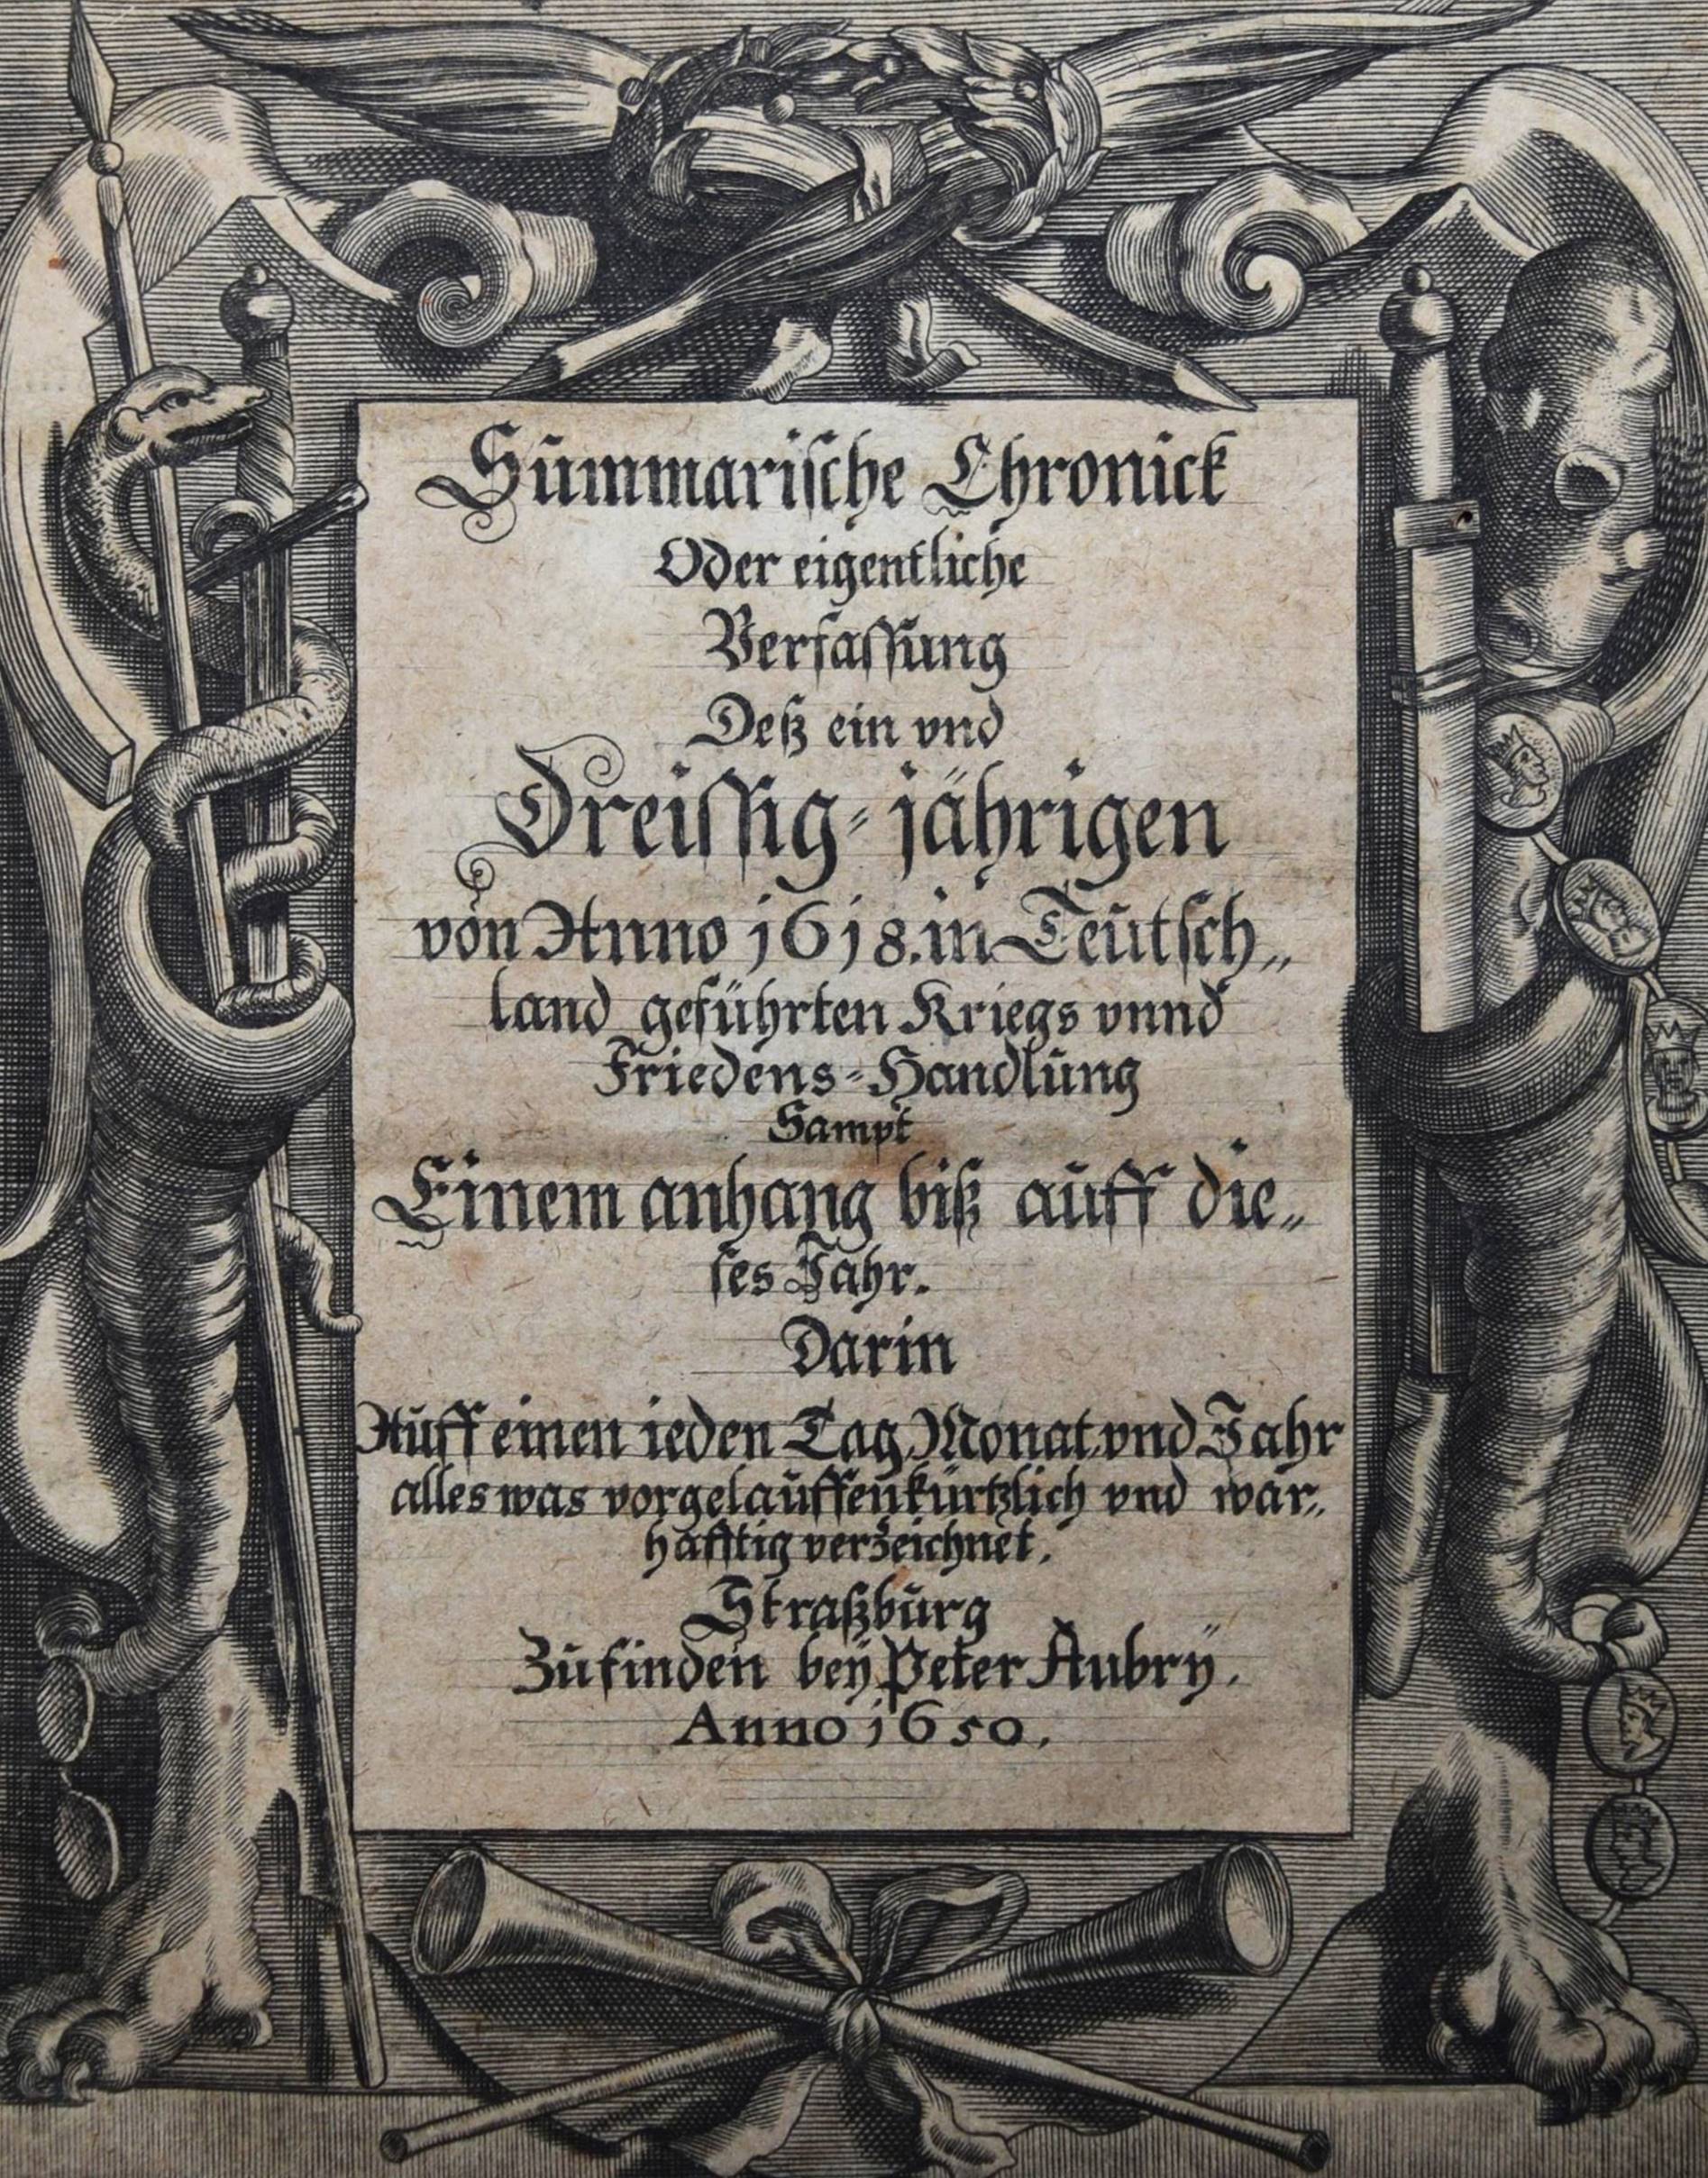 Summarische Chronick
Oder eigentliche
Verfassung
Deß ein vnd
Dreissig-jährigen
von Anno 1618. in Teutsch„
land geführten Kriegs vnnd
Friedens-Handlung
Sampt
Einem anhang biß auff die„
ses Jahr.
Darin
Auff einen ieden Tag, Monat, vnd Jahr
alles was vorgelauffen kürtzlich vnd war„
hafftig verzeichnet.
Straßburg
Zufinden bey Peter Aubry.
Anno 1650.